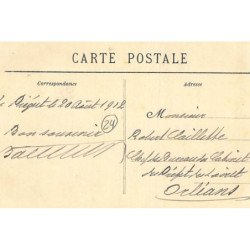 CARTE POSTALE
Correspondance
Adresse
le 20 Août 1912
Bon souvenir
24
Monsieur
Robert Caillette
Chef de Bureau du Cabinet
du Préfet du Loiret
Orléans